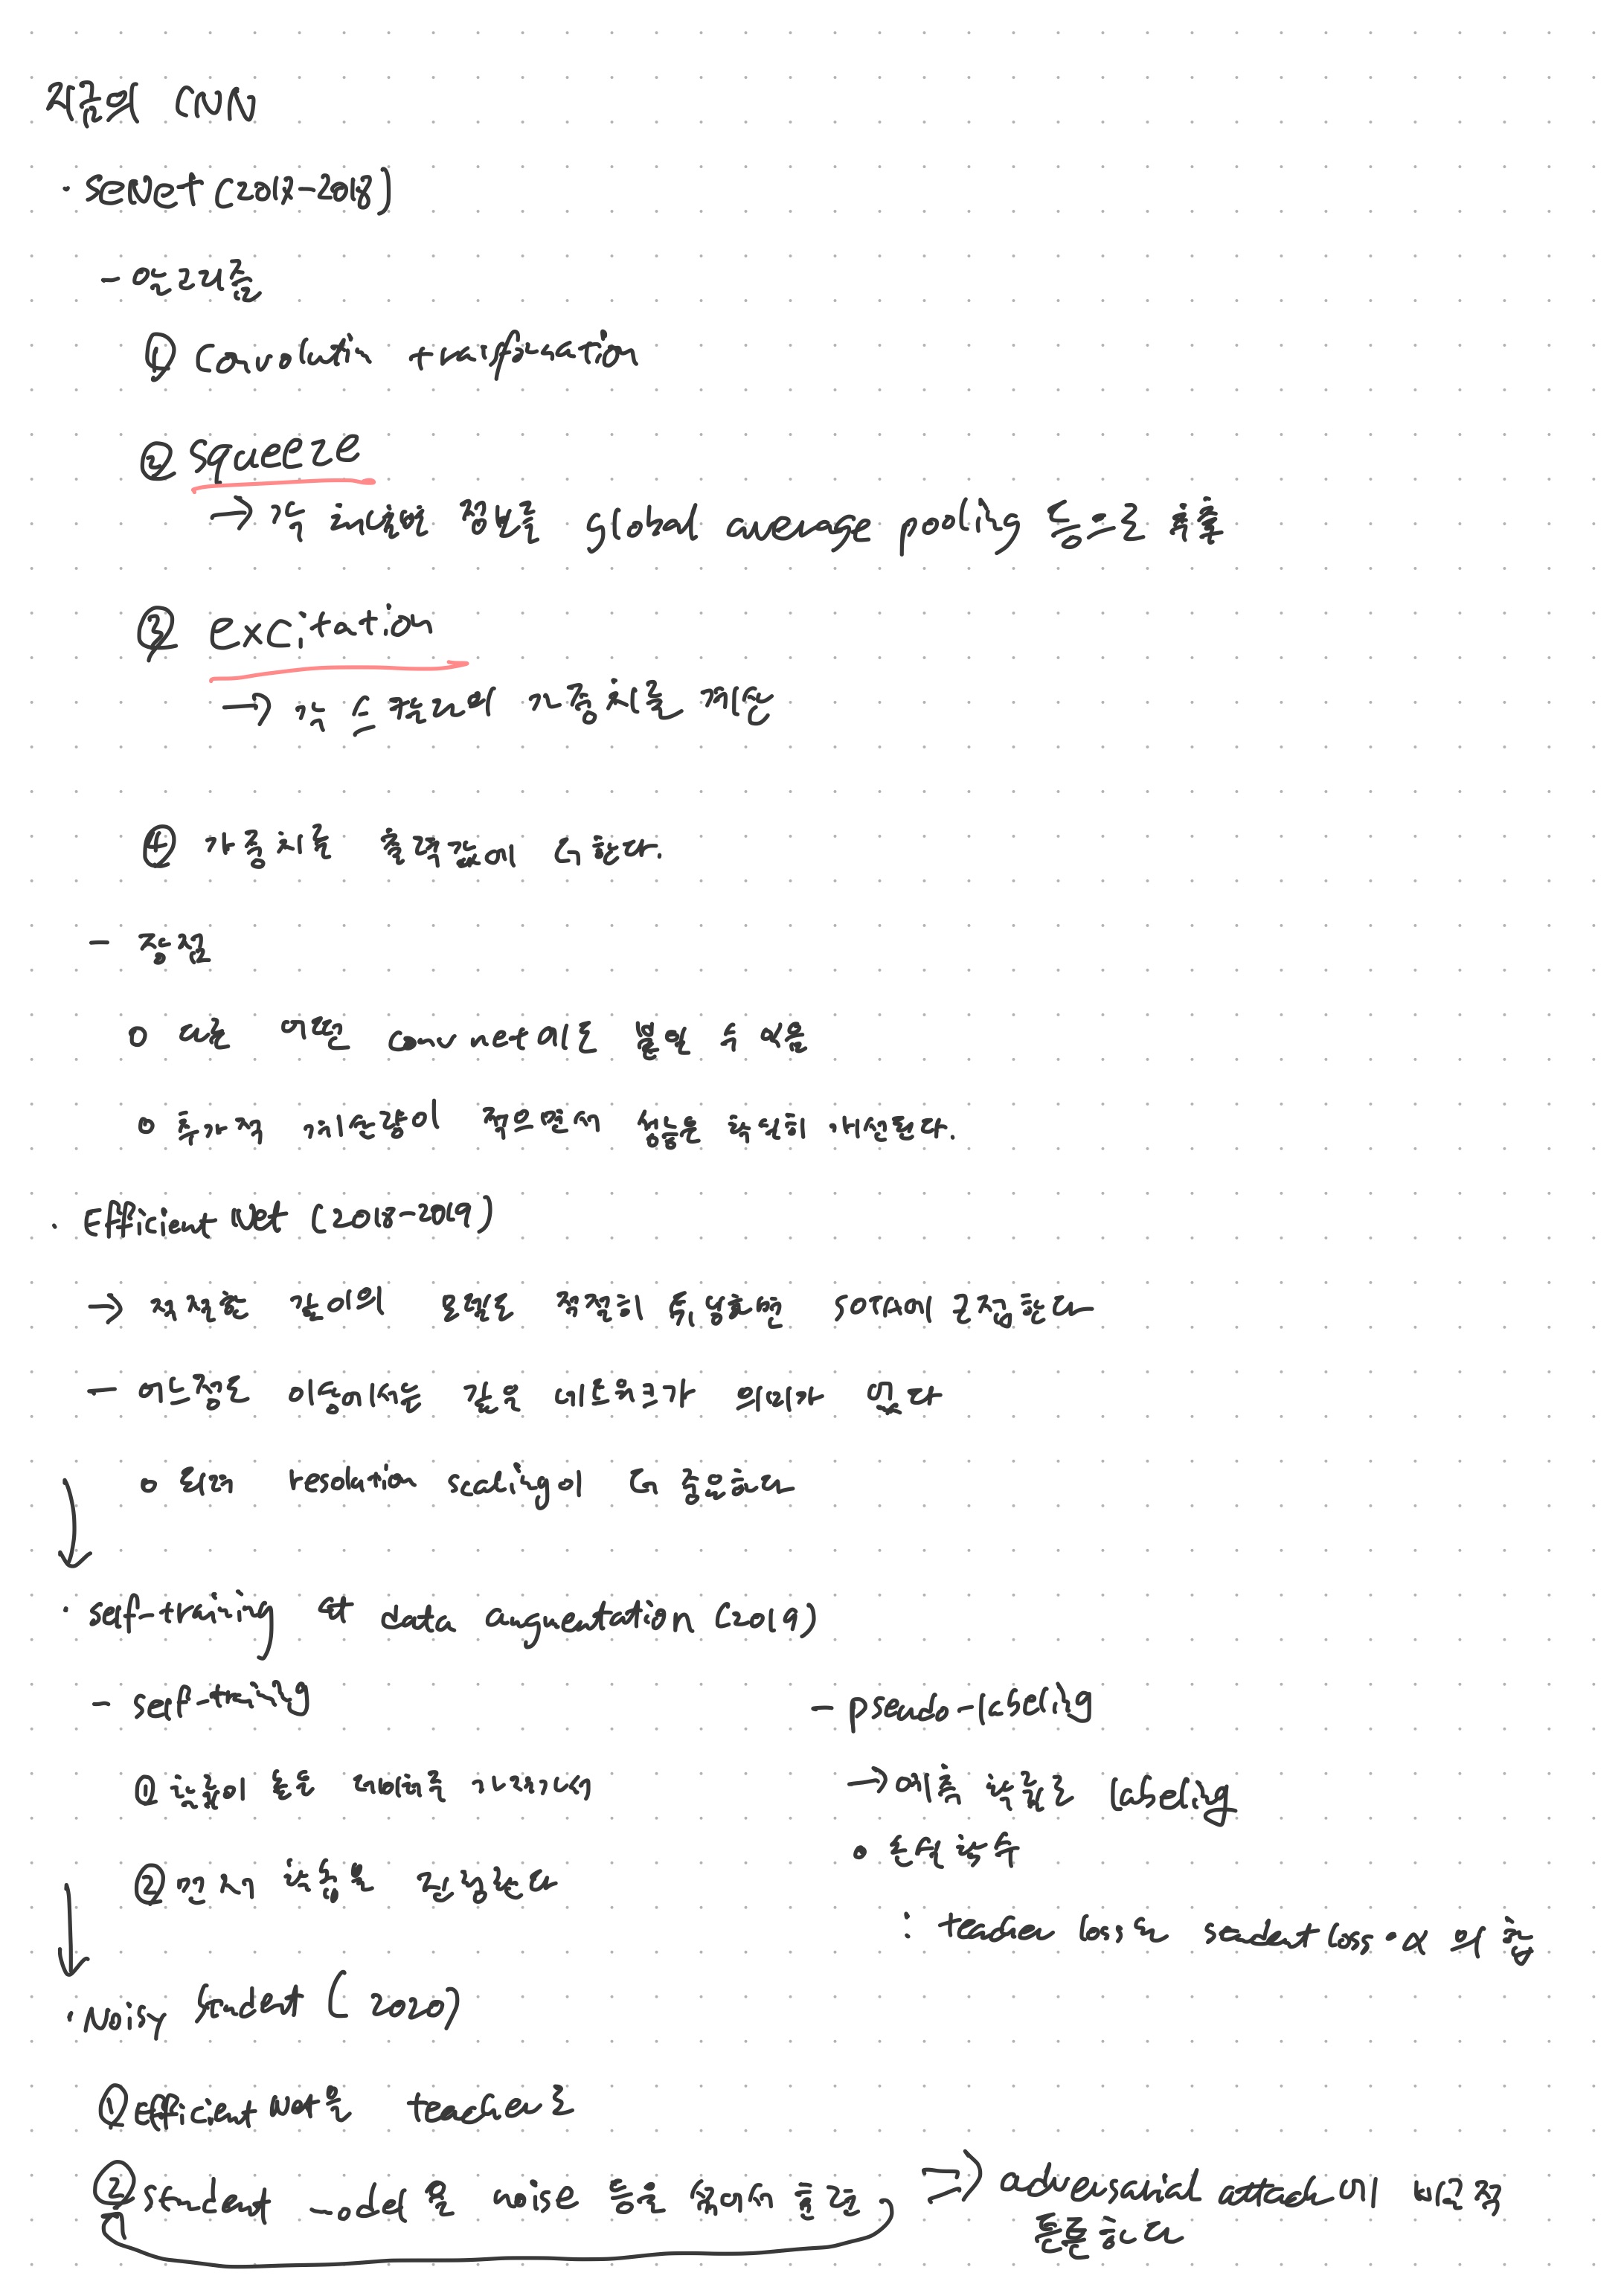 지금의 CNN
· SENet (2017-2018)
- 알고리즘
① Convolution transformation
② squeeze
→ 각 채널별 정보를 global average pooling 등으로 추출
③ excitation
→ 각 스칼라의 가중치를 계산
④ 가중치를 출력값에 더한다.
- 장점
o 다른 어떤 conv net에도 붙일 수 있음
o 추가적 계산량이 적으면서 성능은 확실히 개선된다.
· Efficient Net (2018-2019)
→ 적절한 깊이의 모델도 적절히 튜닝하면 SOTA에 근접한다
- 어느정도 이상에서는 깊은 네트워크가 의미가 없다
o 되려 resolation scaling이 더 중요하다
· self-training at data augmentation (2019)
- self-training
- pseudo-labeling
① 라벨이 없는 데이터를 가져와서
→ 예측 확률로 labeling
② 먼저 학습을 진행한다
o 손실 함수
: teacher loss와 student loss · α 의 합
· Noisy Student (2020)
① Efficient Net을 teacher로
② student model 을 noise 등을 섞어서 훈련
⇒ adversarial attack에 비교적
튼튼하다